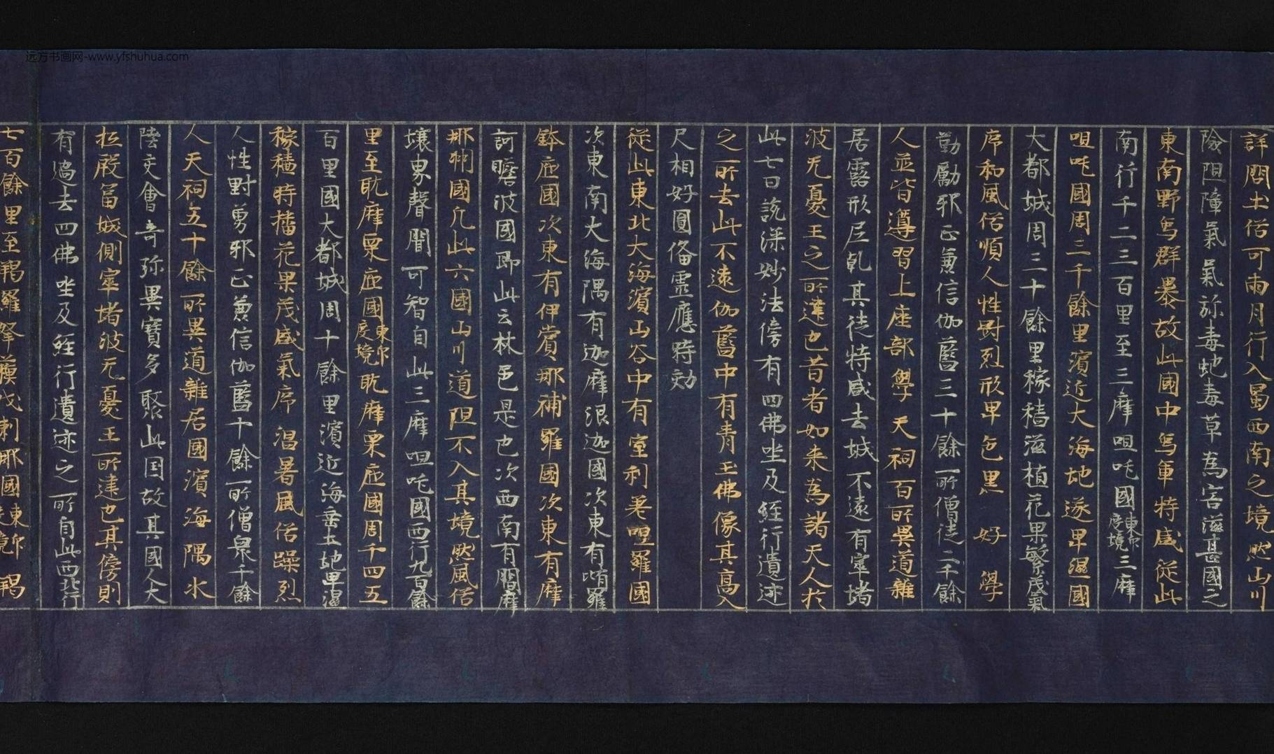 詳問土俗可兩月行入蜀西南之境然山川
險阻障氣氣沴毒虵毒草為害滋甚國之
東南野烏群暴故此國中烏軍特盛從此
南行千二三百里至三摩呾吒國東印度境三摩
呾吒國周三千餘里濱近大海地遂卑濕國
大都城周二十餘里稼穡滋植花果繁茂氣
序和風俗順人性對烈形卑色黑 好 學
勤勵邪正兼信伽藍三十餘所僧徒二千餘
人並皆遵習上座部學天祠百所異道雜
居露形尼乹其徒特盛去城不遠有窣堵
波无憂王之所建也昔者如来為諸天人於
此七日說深妙法傍有四佛坐及經行遺迹
之所去此不遠伽藍中有青玉佛像其高八
尺相好圓俻靈應時効
從此東北大海濱山谷中有室利差呾羅國
次東南大海隅有迦摩浪迦國次東有墮羅
鉢底國次東有伊賞那補羅國次東有摩
訶瞻波國即此云林邑是也次西南有閻摩
那洲國凡此六國山川道阻不入其境然風俗
壤界聲聞可智自此三摩呾吒國西行九百餘
里至躭摩栗底國東印度境躭摩栗底國周千四五
百里國大都城周十餘里濱近海垂土地卑濕
稼穡時播花果茂盛氣序溫暑風俗躁烈
人性對勇邪正兼信伽藍十餘所僧衆千餘
人天祠五十餘所異道雜居國濱海隅水
陸交會奇弥異寶多聚此囯故其國人大
抵殷富城側窣堵波无憂王所建也其傍則
有過去四佛坐及經行遺迹之所自此西北行
七百餘里至羯羅拏蘓伐剌那國東印度境羯
远方书画网-www.yfshuhua.com